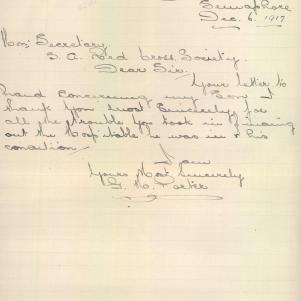 Semaphore
Dec. 6. 1917
Hon: Secretary.
S. A. Red Cross Society.
Dear Sir.
Your letter to
hand concerning my Son I
thank you most Sincerely for
all the trouble you took in finding
out the Hospital he was in & his
condition.
I am
Yours Most Sincerely
Porter